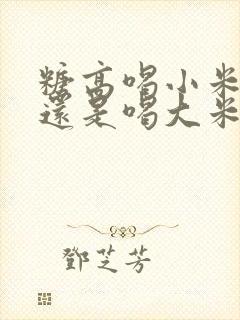 糖高喝小米
還是喝大米
鄧芝芳